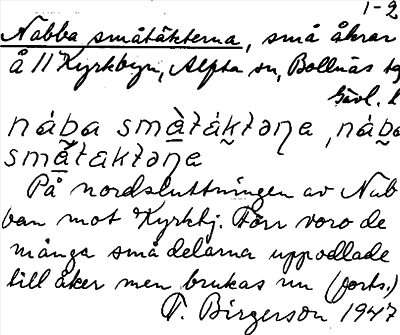 1-2
Nabba småtäkterna, små åkrar
å 11 Kyrkbyn, Alfta sn, Bollnäs tg
Gävl. l
nába smàtáktəŋa, nába
smàtaktəŋa
På nordsluttningen av Nab
ban mot Kyrkbj. Förr voro de
många små delarna uppodlade
till åker men brukas nu (forts.)
T. Birgerson 1947